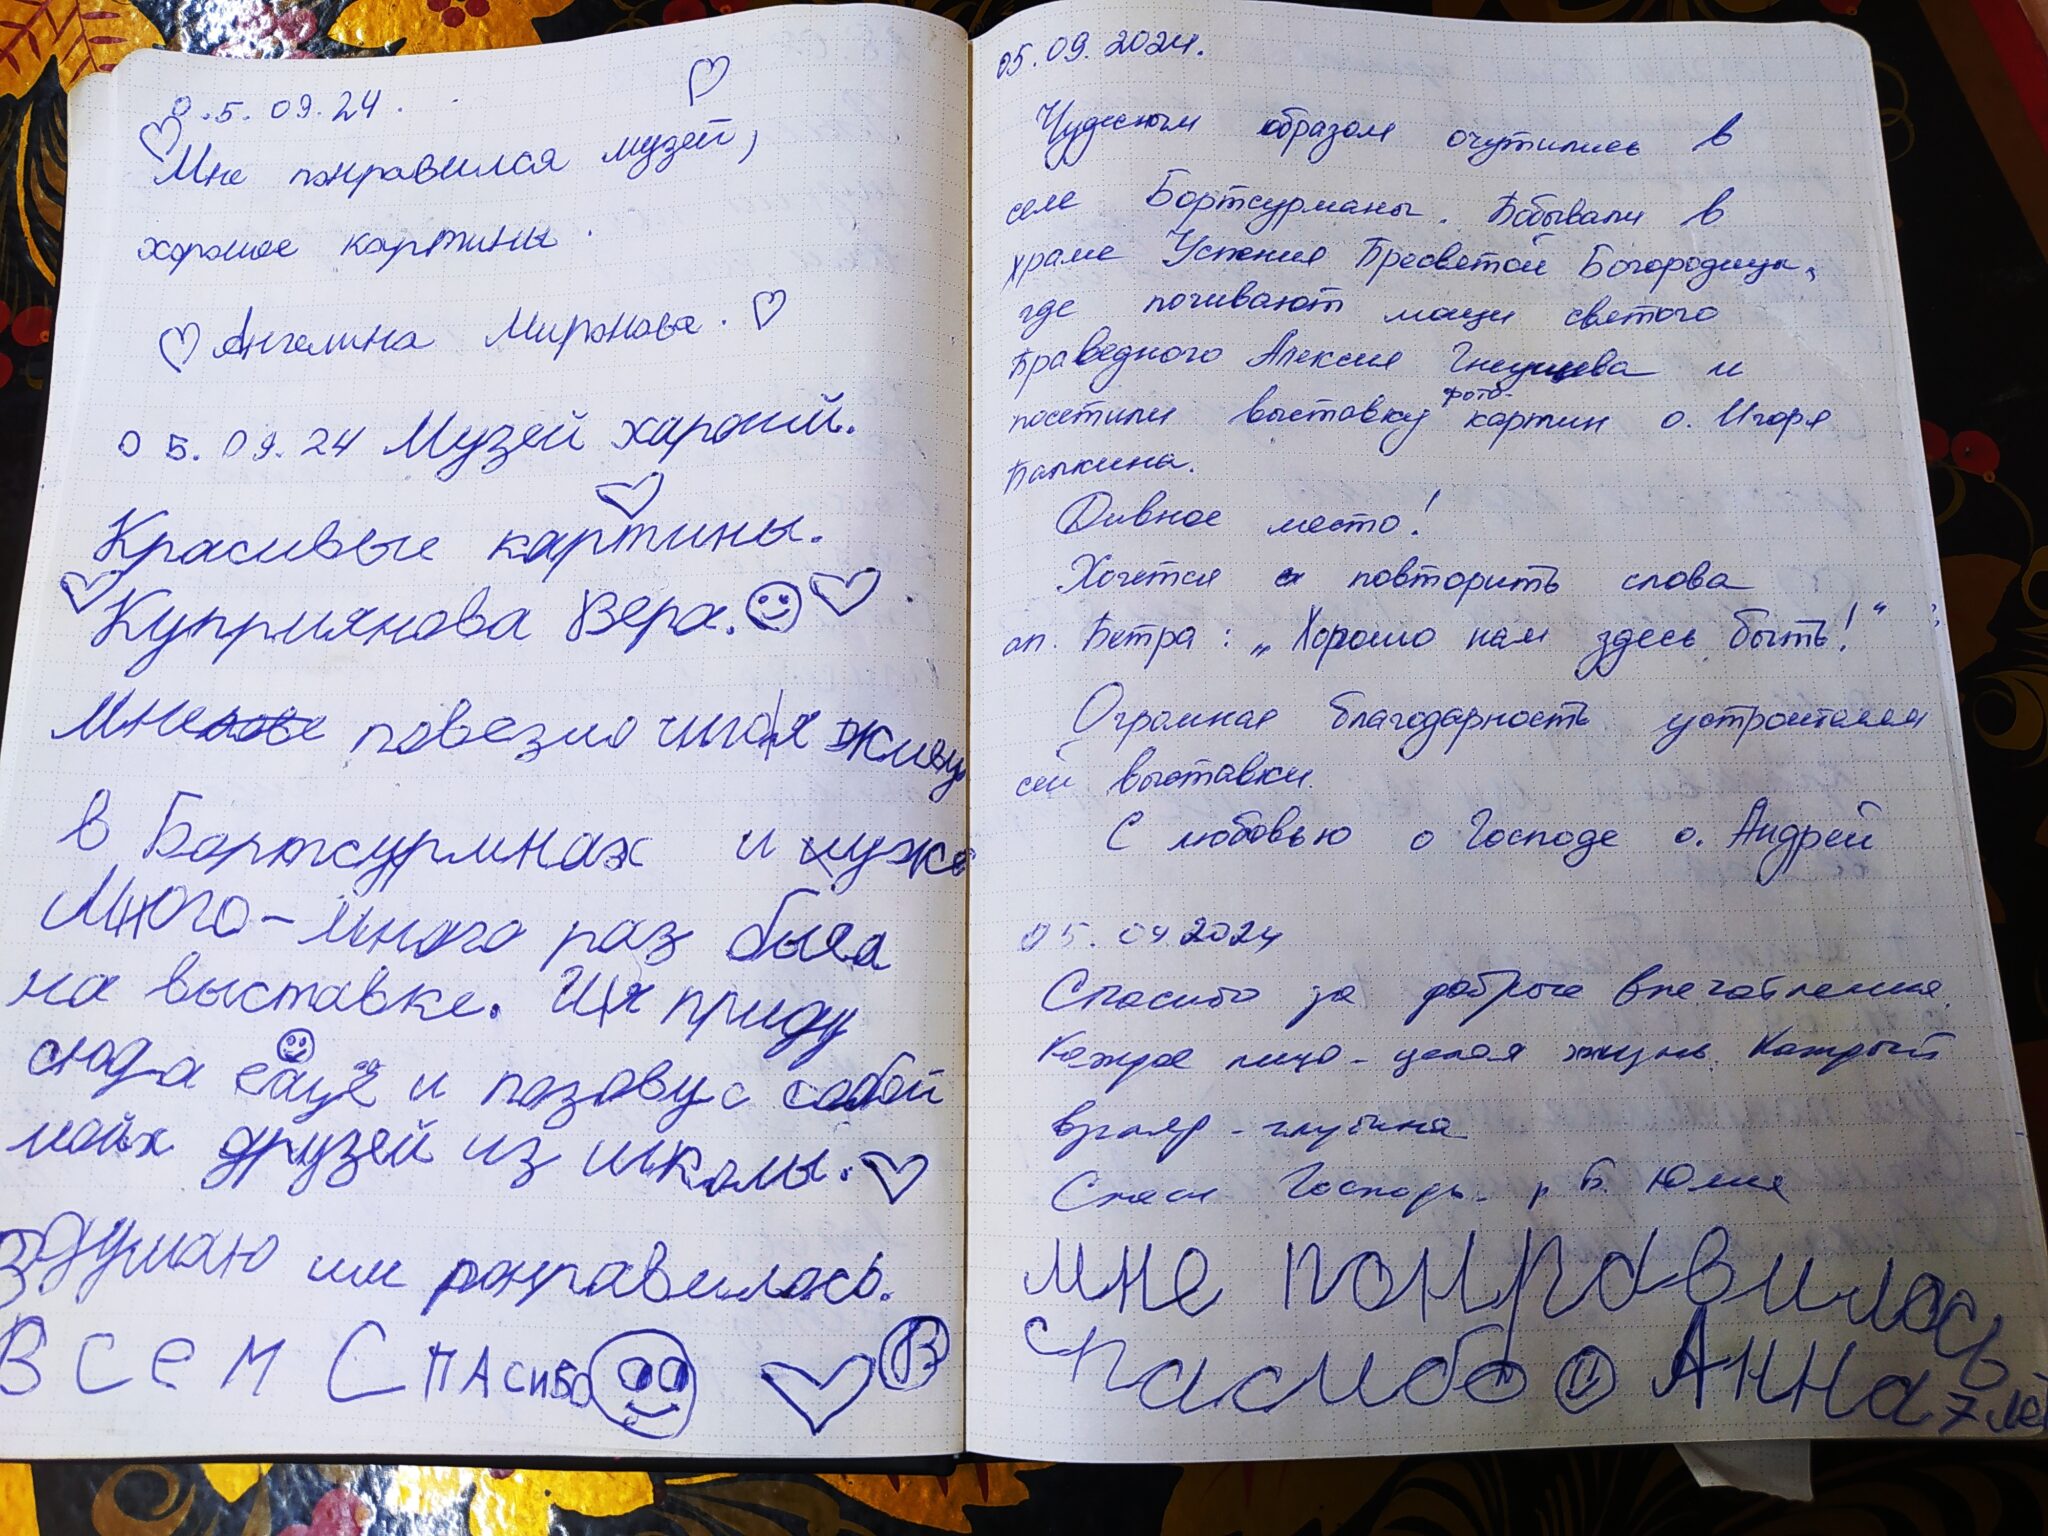 05.09.24.
Мне понравился музей,
хорошие картины.
Ангелина Миронова.
05.09.24 Музей хароший.
Красивые картины.
Куприянова Вера.
Мне повезло что я живу
в Бортсурмнах и уже
Много-много раз была
на выставке. И я приду
сюда ещё и позову с собой
моих друзей из школы.
Думаю им понравилось.
Всем Спасибо
В
05.09.2024.
Чудесным образом очутились в
селе Бортсурманы. Побывали в
храме Успения Пресвятой Богородицы,
где почивают мощи святого
праведного Алексия Гнеушева и
посетили выставку фото-картин о. Игоря
Палкина.
Дивное место!
Хочется повторить слова
ап. Петра: „Хорошо нам здесь быть!"
Огромная благодарность устроителям
сей выставки.
С любовью о Господе о. Андрей
05.09.2024
Спасибо за добрые впечатления.
Каждое лицо - целая жизнь. Каждый
взгляд - глубина
Спаси Господь. р. Б. Юлия
мне понравилось
спасибо Анна 7 лет